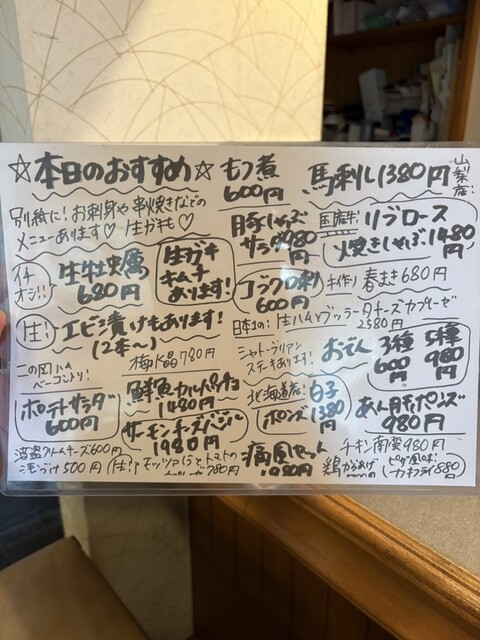 ☆本日のおすすめ☆
別紙に！お刺身や串焼きなどの
メニューあります♡生ガキも♡
イチオシ!!
生牡蠣
680円
生ガキ
キムチ
あります！
生！
エビ漬けもあります！
(2本〜)
梅水晶 780円
二の岡ハム
ベーコン入り！
ポテトサラダ
600円
鮮魚カルパッチョ
1480円
サーモンチーズバジル
1980円
酒盗クリームチーズ600円
500円
生！モッツァレラとトマトの
780円
もつ煮
600円
馬刺し1380円
山梨産！
豚しゃぶ
サラダ980円
国産牛！リブロース
焼きしゃぶ1480円
コブクロ刺
600円
手作り春まき680円
日本1の！生ハムとブッラータチーズカプレーゼ
2580円
シャトーブリアン
ステーキあります！
おでん
3種
600円
5種
980円
北海道産！
白子
ポンズ
1380円
あん肝ポンズ
980円
痛風セット
チキン南蛮980円
鶏からあげ
ピザ風味！
カキフライ880円